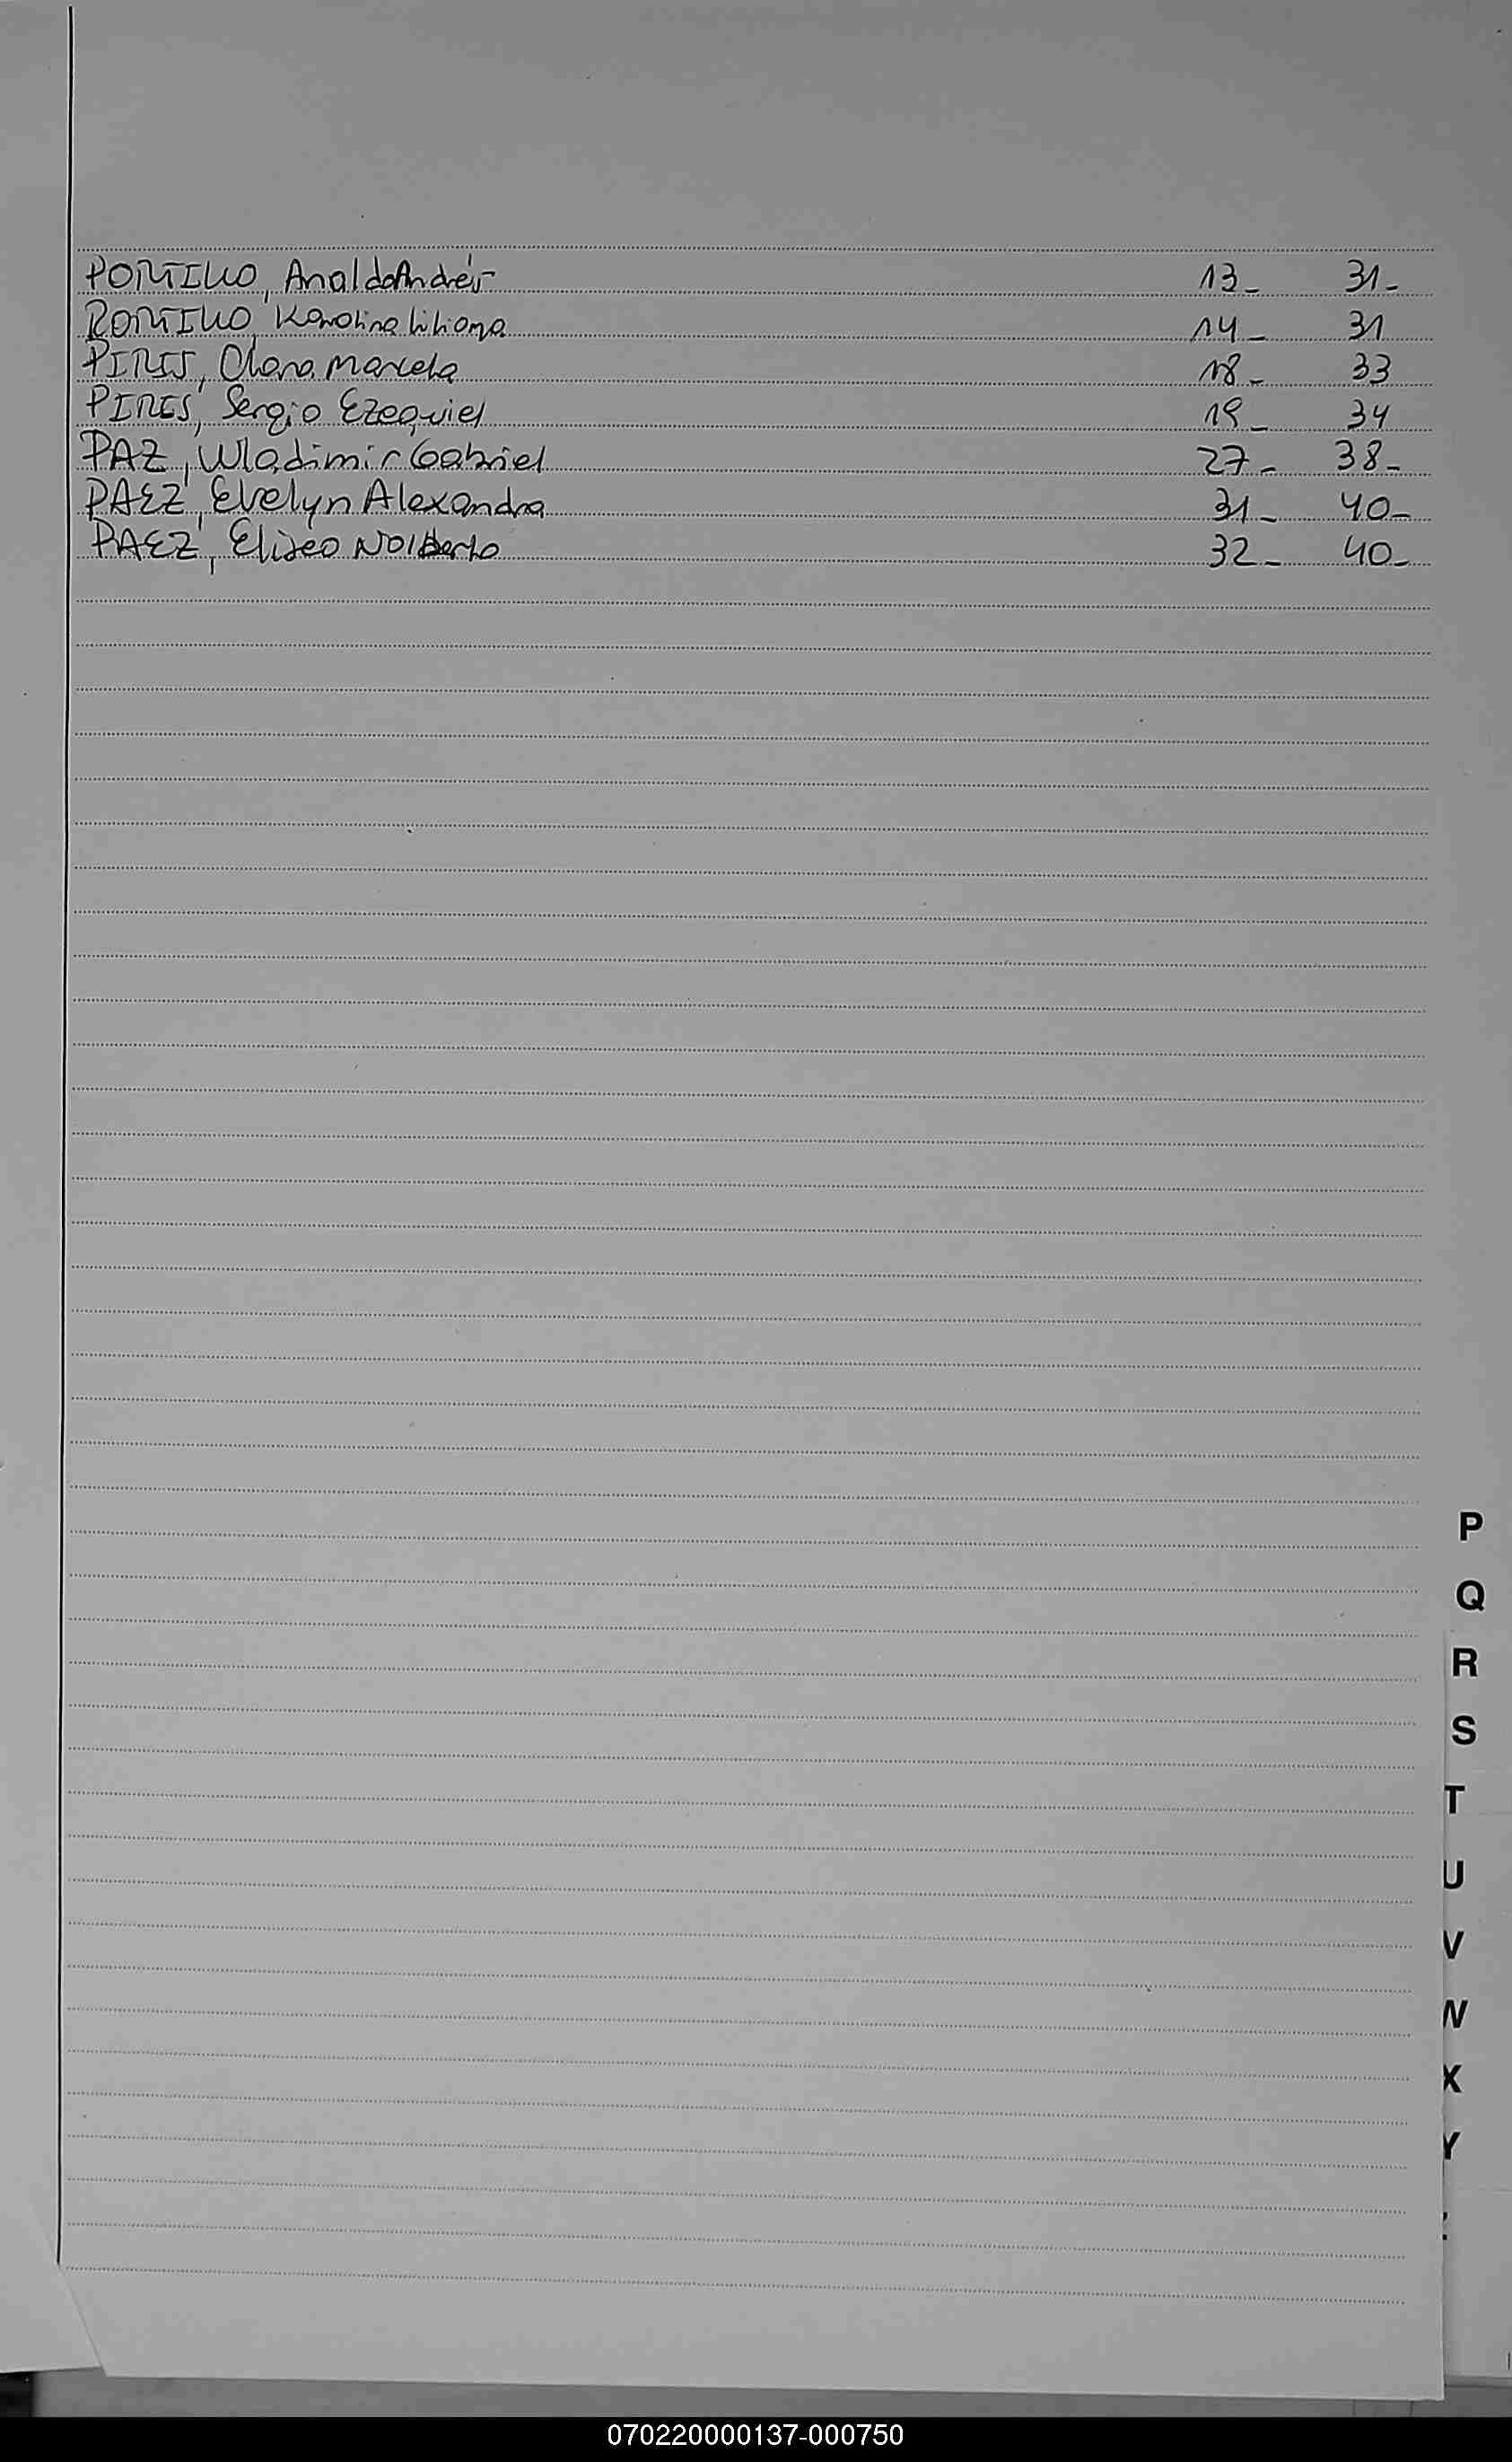 PORTILLO, Analdo Andrés- 13- 31-
PORTILLO, Karolina Liliana 14- 31
PIRIS, Clara Marcela 18- 33
PIRES, Sergio Ezequiel 19- 34
PAZ, Wladimir Gabriel 27- 38-
PAEZ, Evelyn Alexandra 31- 40-
PAEZ, Eliseo Norberto 32- 40-
P
Q
R
S
T
U
V
W
X
Y
070220000137-000750